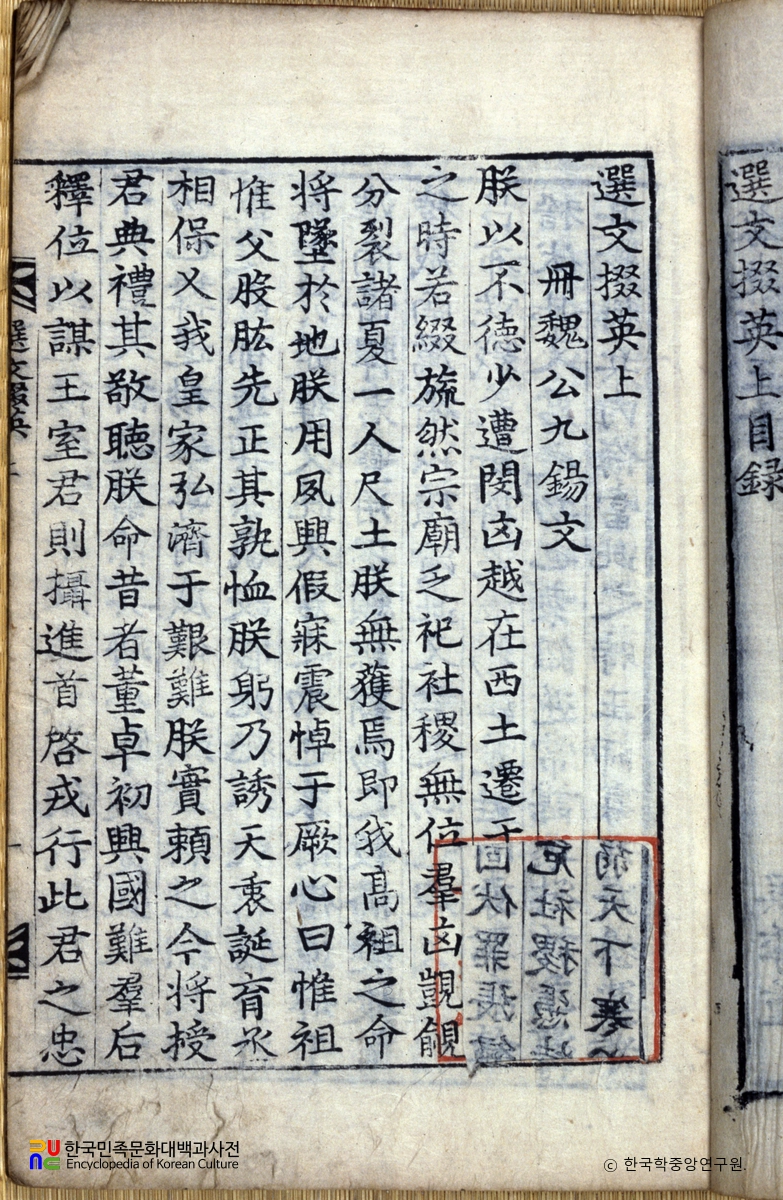 選文掇英上目録
選文掇英上
冊魏公九錫文
朕以不徳少遭閔凶越在西土遷于
之時若綴旒然宗廟乏祀社稷無位羣凶覬覦
分裂諸夏一人尺土朕無獲焉即我高祖之命
将墜於地朕用夙興假寐震悼于厥心曰惟祖
惟父股肱先正其孰恤朕躬乃誘天衷誕育丞
相保乂我皇家弘濟于艱難朕實頼之今将授
君典禮其敬聴朕命昔者董卓初興國難羣后
釋位以謀王室君則攝進首啓戎行此君之忠
選文掇英上
한국민족문화대백과사전
Encyclopedia of Korean Culture
ⓒ 한국학중앙연구원.